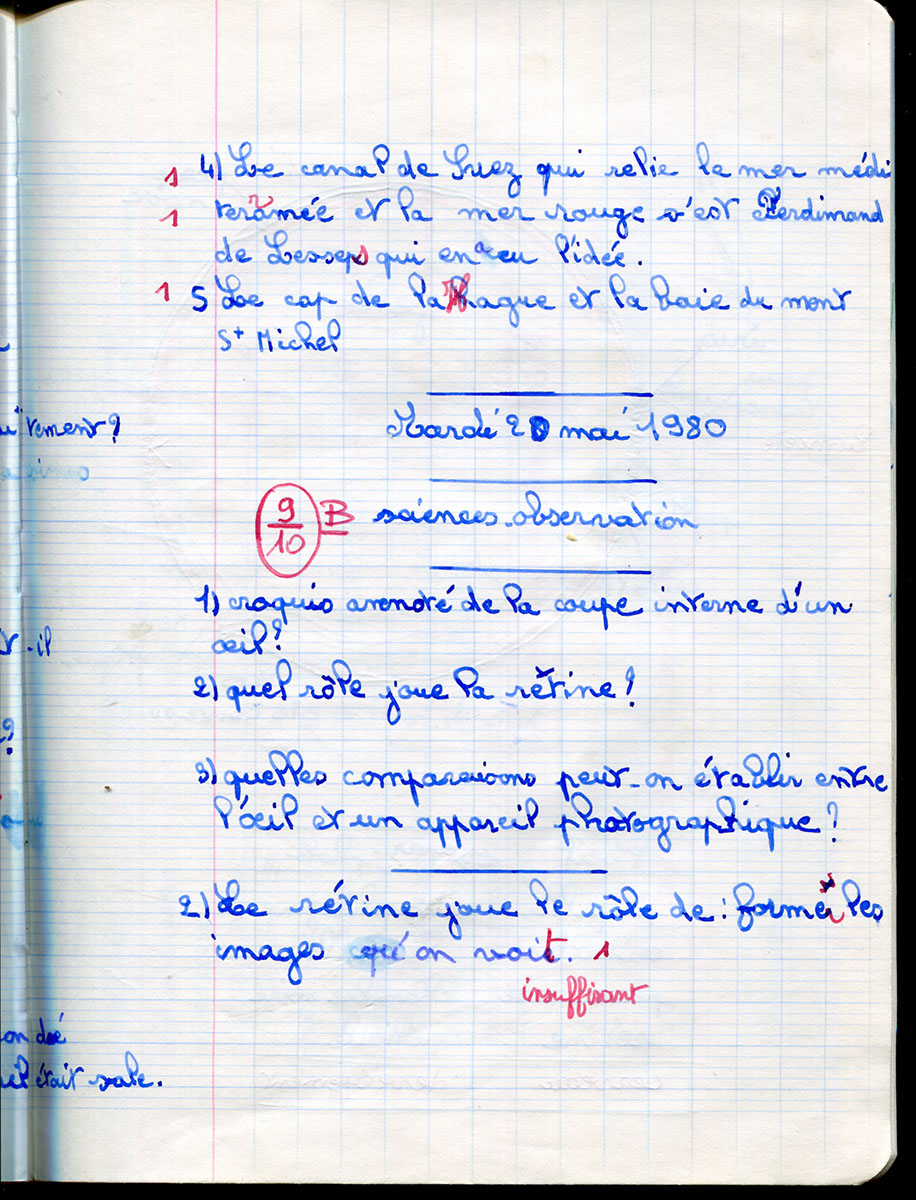 1 4) Le canal de Suez qui relie le mer médi
1 terramée et la mer rouge s'est Ferdimand
de Lesseps qui en a eu l'idée.
1 5 Le cap de la Hague et la baie du mont
St Michel
Mardi 20 mai 1980
9/10 B sciences.observation
1) croquis annoté de la coupe interne d'un
œil?
2) quel rôle joue la rétine?
3) quelles comparaisons peut-on établir entre
l'œil et un appareil photographique?
2) Le rétine joue le rôle de: former les
images qu'on voit. 1
insuffisant
tement?
t-il
?
on dé
était sale.